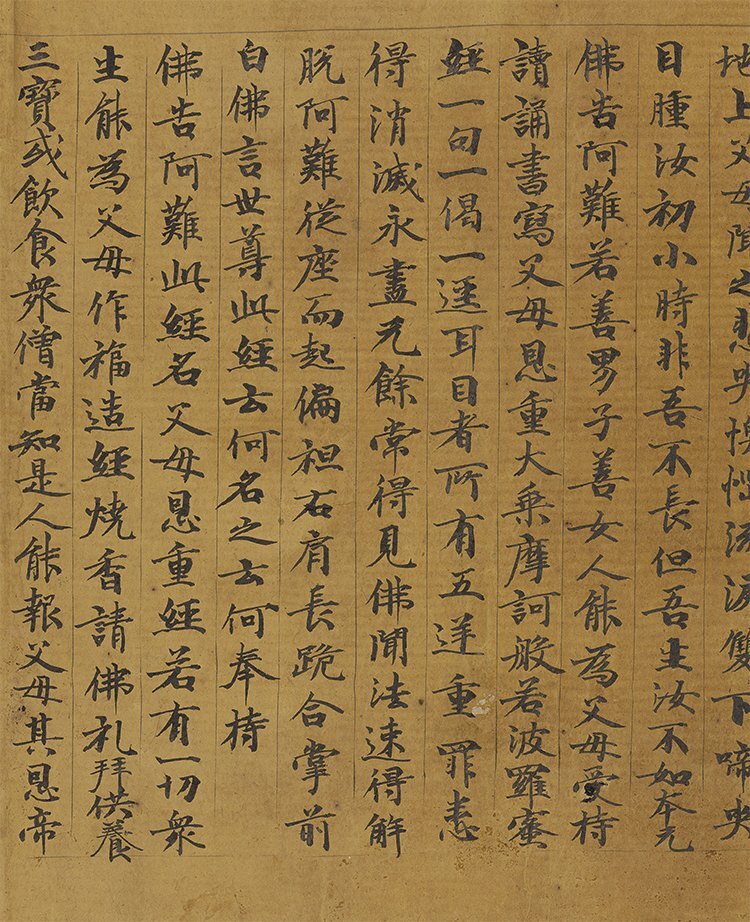 地上父母聞之悲哭懊惱流淚雙下啼哭
目腫汝初小時非吾不長但吾生汝不如本无
佛告阿難若善男子善女人能為父母受持
讀誦書寫父母恩重大乗摩訶般若波羅蜜
經一句一偈一逕耳目者所有五逆重罪悉
得消滅永盡无餘常得見佛聞法速得解
脫阿難從座而起偏袒右肩長跪合掌前
白佛言世尊此經云何名之云何奉持
佛告阿難此經名父母恩重經若有一切衆
生能為父母作福造經燒香請佛礼拜供養
三寶或飲食衆僧當知是人能報父母其恩帝